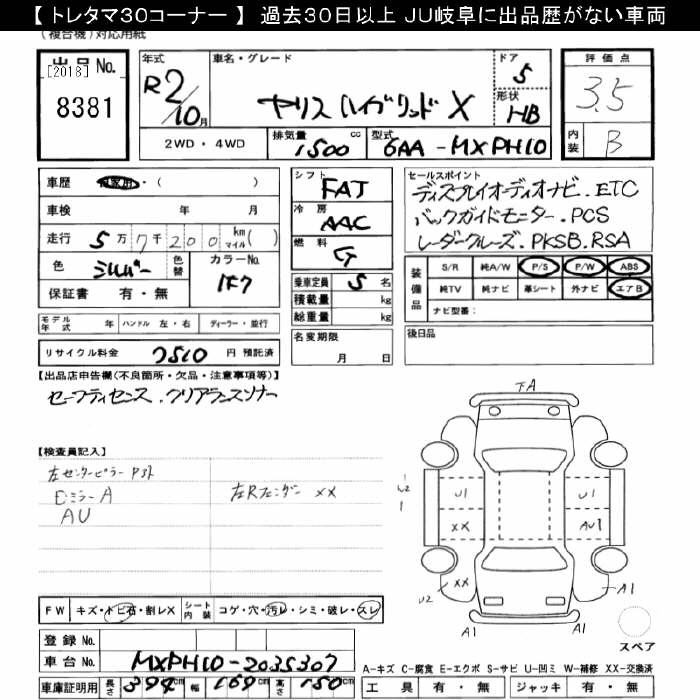 【 トレタマ30コーナー 】 過去30日以上 JU岐阜に出品歴がない車両
(複合機)対応用紙
出品 No.
[2018]
8381
年式
R2/10月
車名・グレード
ヤリス ハイブリッド X
ドア
5
形状
HB
評価点
3.5
内装
B
2WD・4WD
排気量
1500 cc
型式
6AA-MXPH10
車歴
自家用・( )
車検 年 月
走行 5万7千200 km マイル( )
色 シルバー 色替
カラーNo. 1F7
保証書 有・無
シフト FAT
冷房 AAC
燃料 G
乗車定員 5 名
積載量 kg
総重量 kg
セールスポイント
ディスプレイオーディオナビ . ETC
バックガイドモニター . PCS
レーダークルーズ . PKSB . RSA
装備品
S/R 純A/W P/S P/W ABS
純TV 純ナビ 革シート 外ナビ エアB
ナビ型番:
モデル年式 年 ハンドル 左・右 ディーラー・並行
名変期限
月 日
後日品
リサイクル料金 7510 円 預託済
【出品店申告欄(不良箇所・欠品・注意事項等)】
セーフティセンス . クリアランスソナー
【検査員記入】
左センターピラー P3ｽﾄ
DミラーA
AU
左Rフェンダー XX
FA
U2
1
U1
XX
U1
AU1
XX
U2
A1
A1
A1
スペア
FW キズ・トビ石・割レX
シート内装 コゲ・穴・汚レ・シミ・破レ・スレ
登録 No.
車台 No. MXPH10-2035307
車庫証明用 長さ 394cm 幅 169cm 高さ 150cm
A-キズ C-腐食 E-エクボ S-サビ U-凹ミ W-補修 XX-交換済
工具 有・無 ジャッキ 有・無